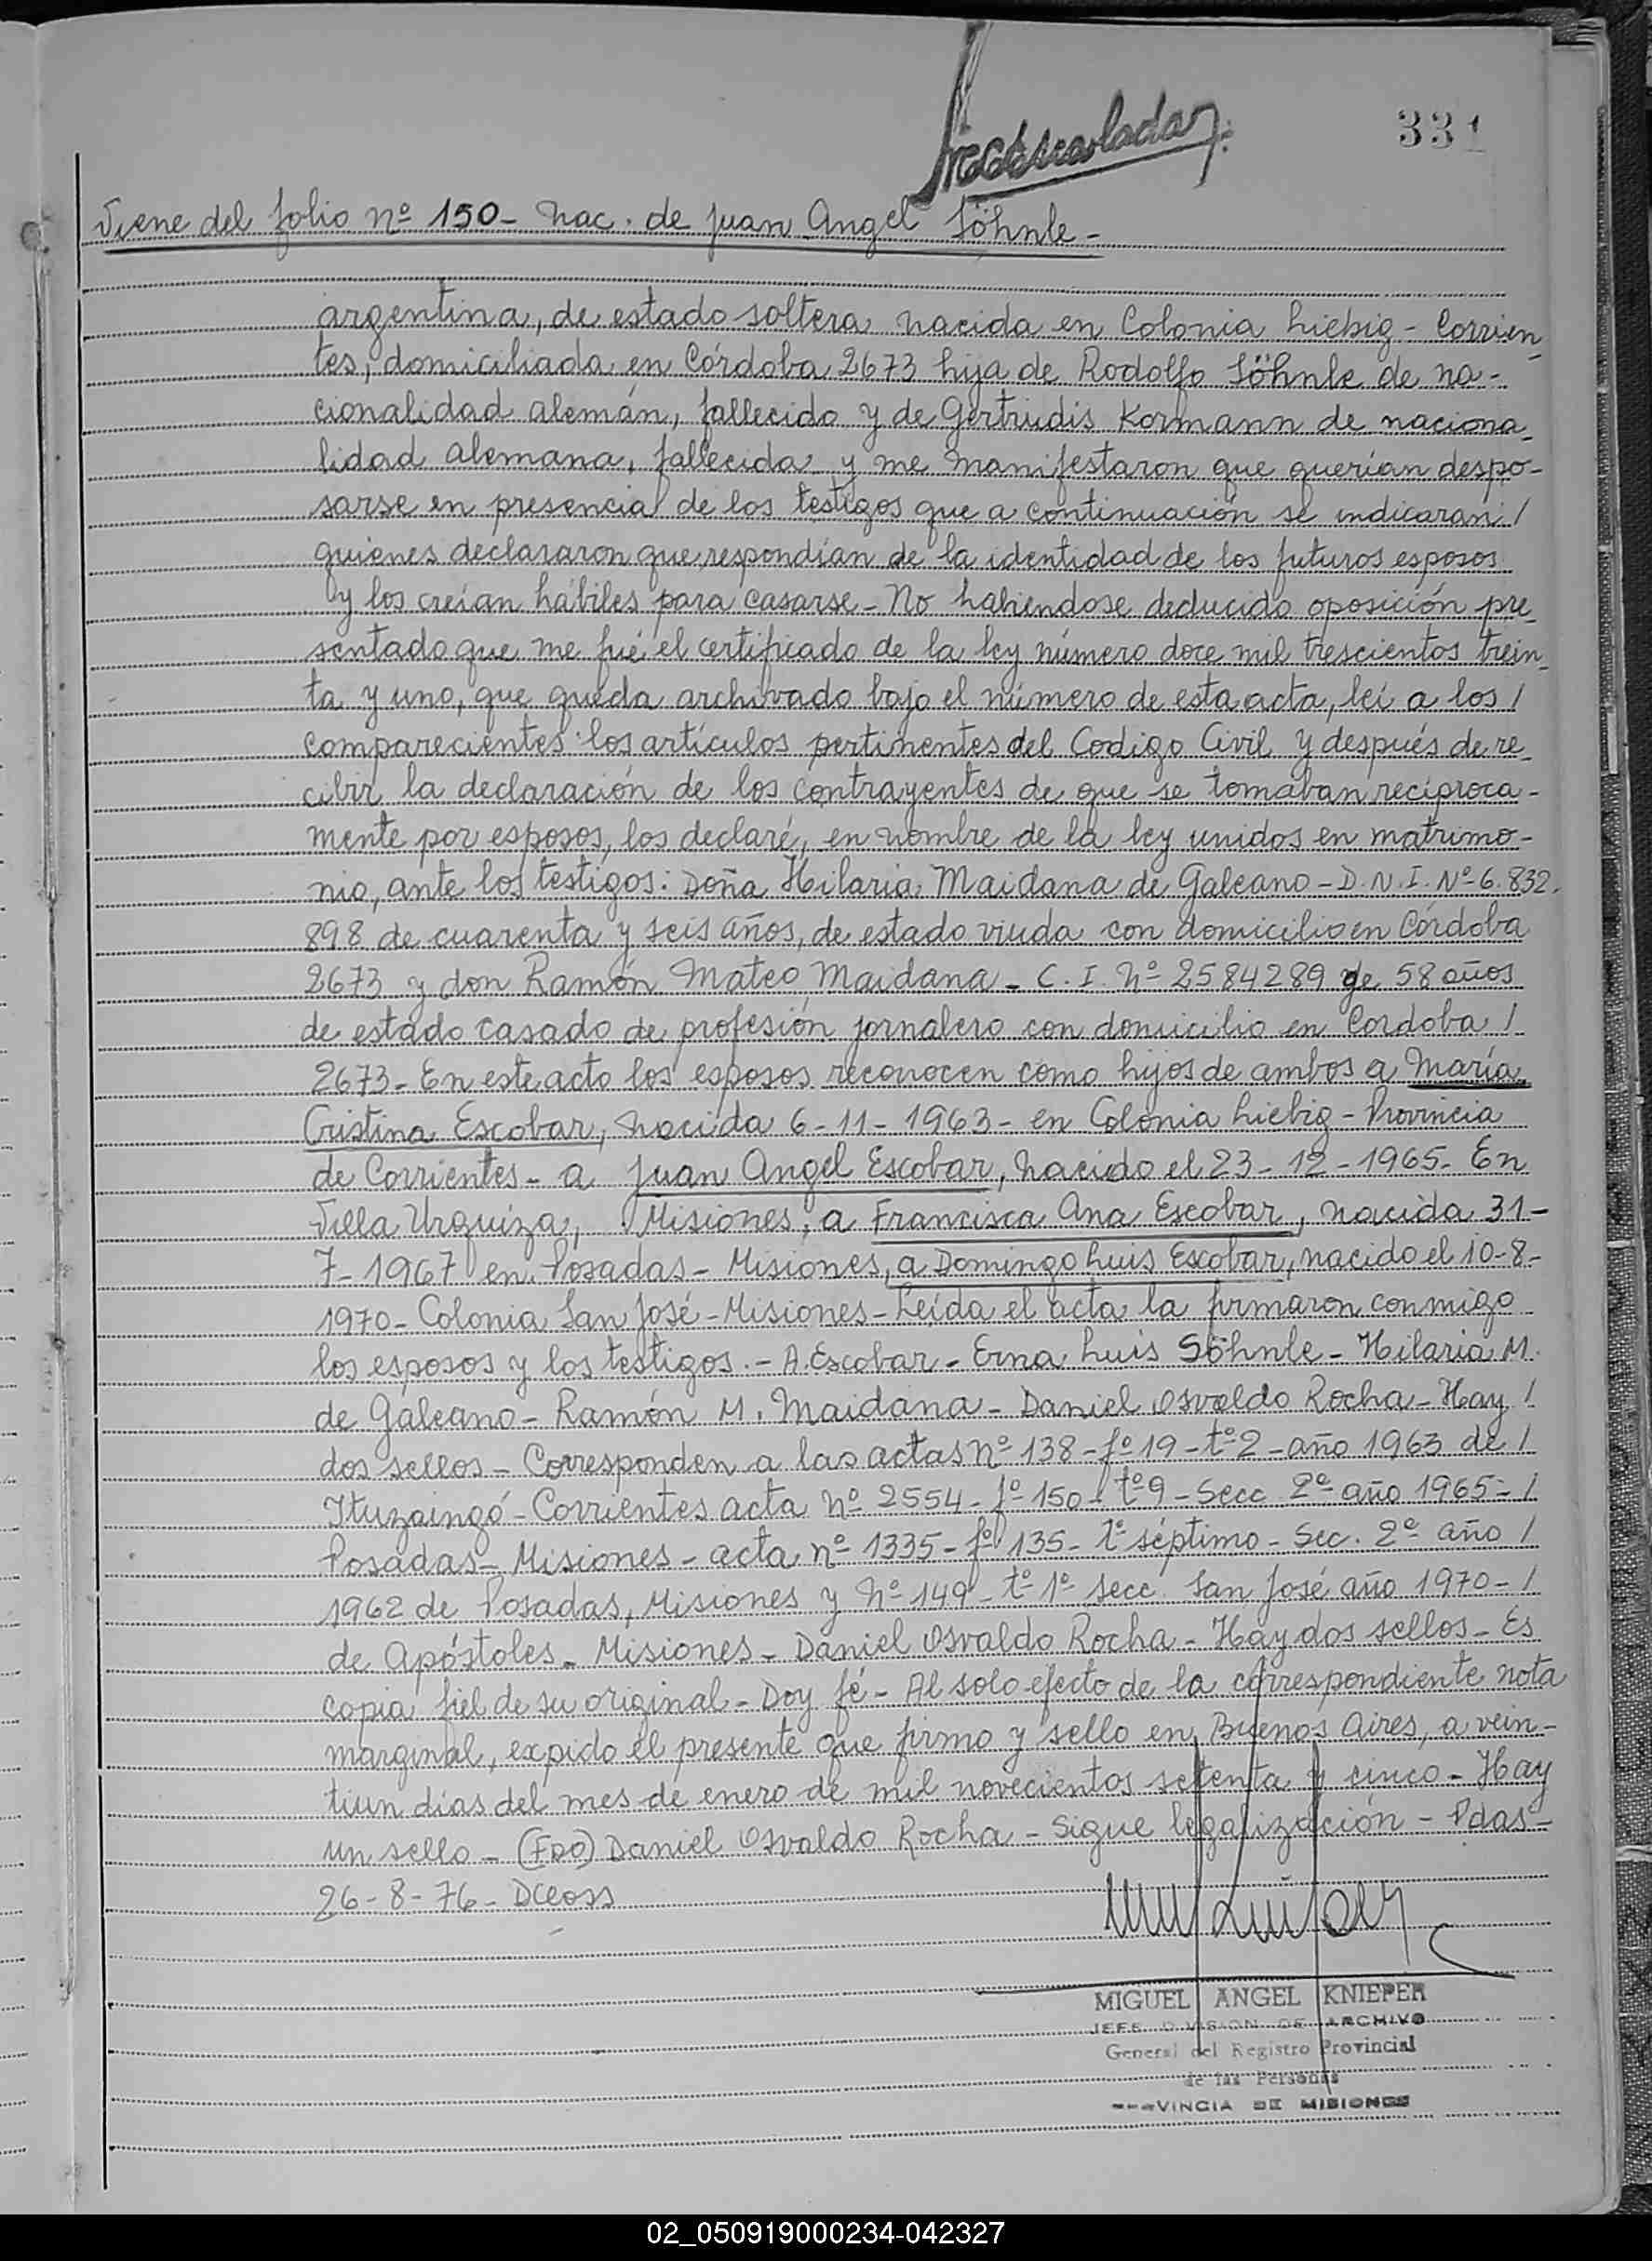 331
Viene del folio nº 150- Nac. de Juan Angel Söhnle-
argentina, de estado soltera nacida en Colonia Liebig - Corrien_
tes, domiciliada en Córdoba 2673 hija de Rodolfo Söhnle de na-
cionalidad alemán, fallecido y de Gertrudis Kormann de naciona_
lidad alemana, fallecida y me manifestaron que querían despo-
sarse en presencia de los testigos que a continuación se indicaran /
quienes declararon que respondían de la identidad de los futuros esposos
y los creían hábiles para casarse - No habiendose deducido oposición pre_
sentado que me fué el certificado de la ley número doce mil trescientos trein_
ta y uno, que queda archivado bajo el número de esta acta, leí a los /
comparecientes los artículos pertinentes del Codigo Civil y después de re_
cibir la declaración de los contrayentes de que se tomaban recíproca-
mente por esposos, los declaré, en nombre de la ley unidos en matrimo-
nio, ante los testigos: Doña Hilaria Maidana de Galeano - D.N.I. Nº 6.832.
898 de cuarenta y seis años, de estado viuda con domicilio en Córdoba
2673 y don Ramón Mateo Maidana - C.I. Nº 2584289 de 58 años
de estado casado de profesión jornalero con domicilio en Cordoba /
2673 - En este acto los esposos reconocen como hijos de ambos a María
Cristina Escobar, nacida 6-11-1963- en Colonia Liebig - Provincia
de Corrientes - a Juan Angel Escobar, nacido el 23-12-1965- En
Villa Urquiza, Misiones, a Francisca Ana Escobar, nacida 31-
7-1967 en Posadas - Misiones, a Domingo Luis Escobar, nacido el 10-8-
1970 - Colonia San José - Misiones - Leída el acta la firmaron conmigo
los esposos y los testigos. - A. Escobar - Erna Luis Söhnle - Hilaria M.
de Galeano - Ramón M. Maidana - Daniel Osvaldo Rocha - Hay /
dos sellos - Corresponden a las actas nº 138 - fº 19 - tº 2 - año 1963 de /
Ituzaingó - Corrientes acta nº 2554 - fº 150 - tº 9 - Secc 2º año 1965 - /
Posadas - Misiones - acta nº 1335 - fº 135 - tº séptimo - Sec. 2º año /
1962 de Posadas, Misiones y Nº 149 - tº 1º secc. San José año 1970 - /
de Apóstoles - Misiones - Daniel Osvaldo Rocha - Hay dos sellos - Es
copia fiel de su original - Doy fé - Al solo efecto de la correspondiente nota
marginal, expido el presente que firmo y sello en Buenos Aires, a vein-
tiun días del mes de enero de mil novecientos setenta y cinco - Hay
un sello - (Fdo) Daniel Osvaldo Rocha - Sigue legalización - Pdas -
26-8-76 -
MIGUEL ANGEL KNIEPER
JEFE DIVISION DE ARCHIVO
General del Registro Provincial
de las Personas
PROVINCIA DE MISIONES
02_050919000234-042327